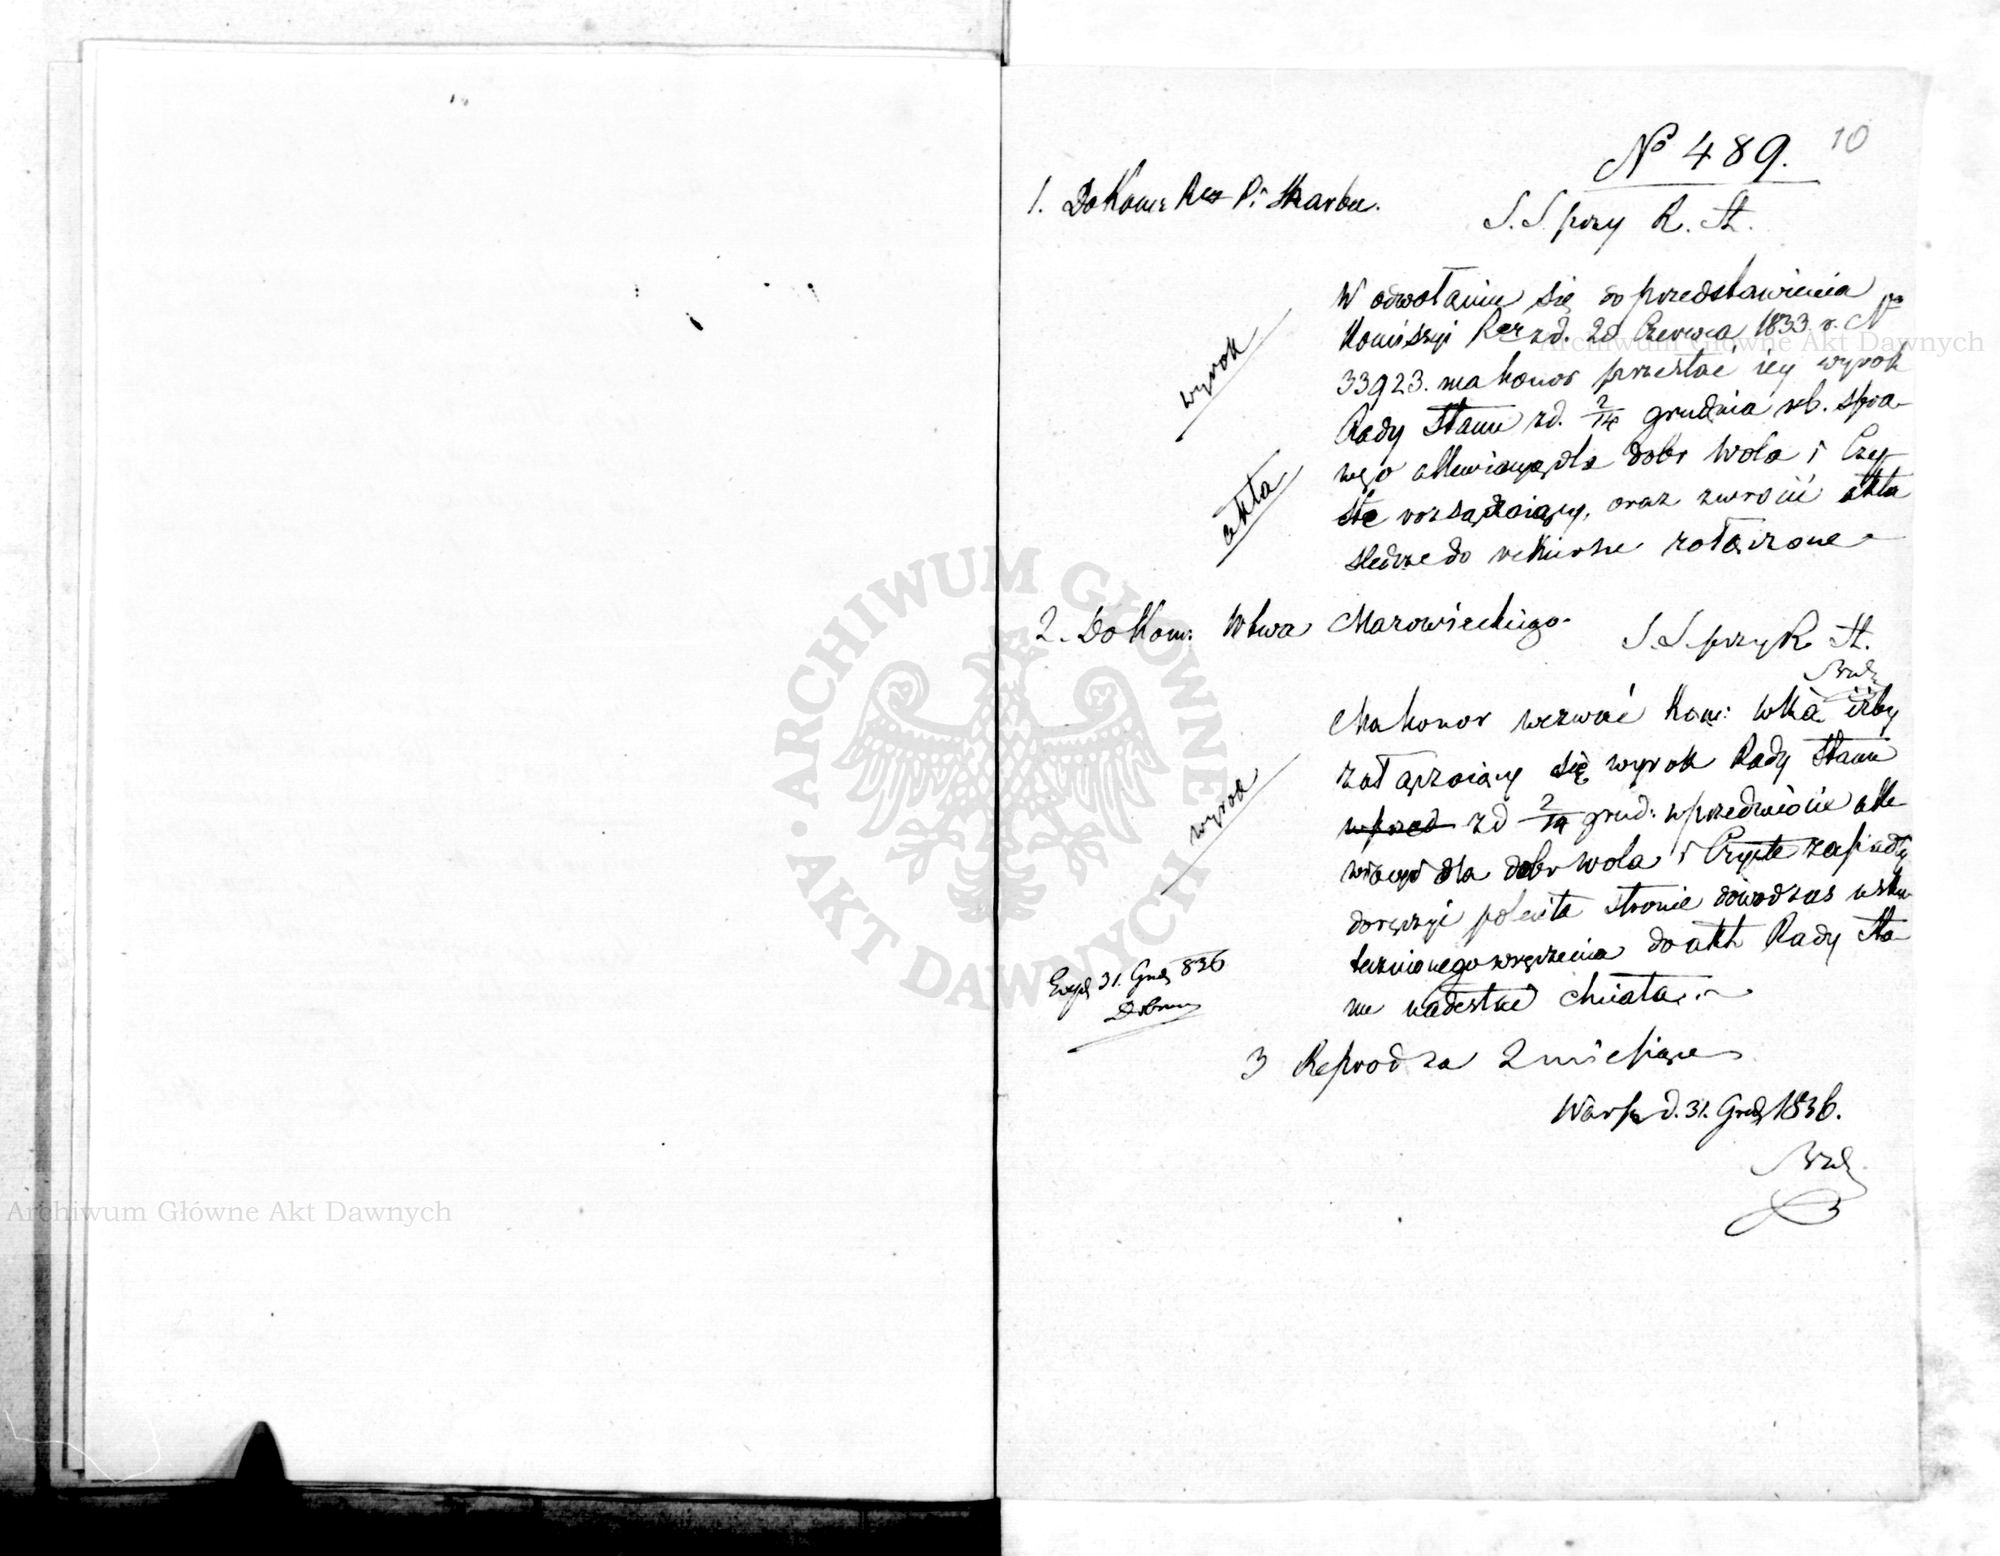 10
No 489.
1. Do Kom: Rz P. i Skarbu.
S. S. przy R. St.
W odwołaniu się do przedstawienia
Kommissyi Rz z d. 20 Czerwca 1833 r. No
33923. ma honor przesłać iey wyrok
wyrok
Rady Stanu z d. 2/14 grudnia rb. spra-
dla dobr Wola i Czy-
akta
ste rozsądzaiący, oraz zwrócić akta
do rekursu załączone
2. Do Kom: Wtwa Mazowieckiego
S. S. przy R. St.
Ma honor wezwać Kom: Wką iżby
załączaiący się wyrok Rady Stanu
wyrok
wprzed z d 2/14 grud: w przedmiocie
dla dobr Wola i Czyste zapadły
doręczyć poleciła stronie dowod zaś usku-
tecznionego wręczenia do akt Rady Sta-
nu nadesłać chciała.
Exp. 31. Grud 836
3 Reprod za 2 miesiące
Warsz d. 31. Grud 1836.
Archiwum Główne Akt Dawnych
Archiwum Główne Akt Dawnych
ARCHIWUM GŁÓWNE AKT DAWNYCH